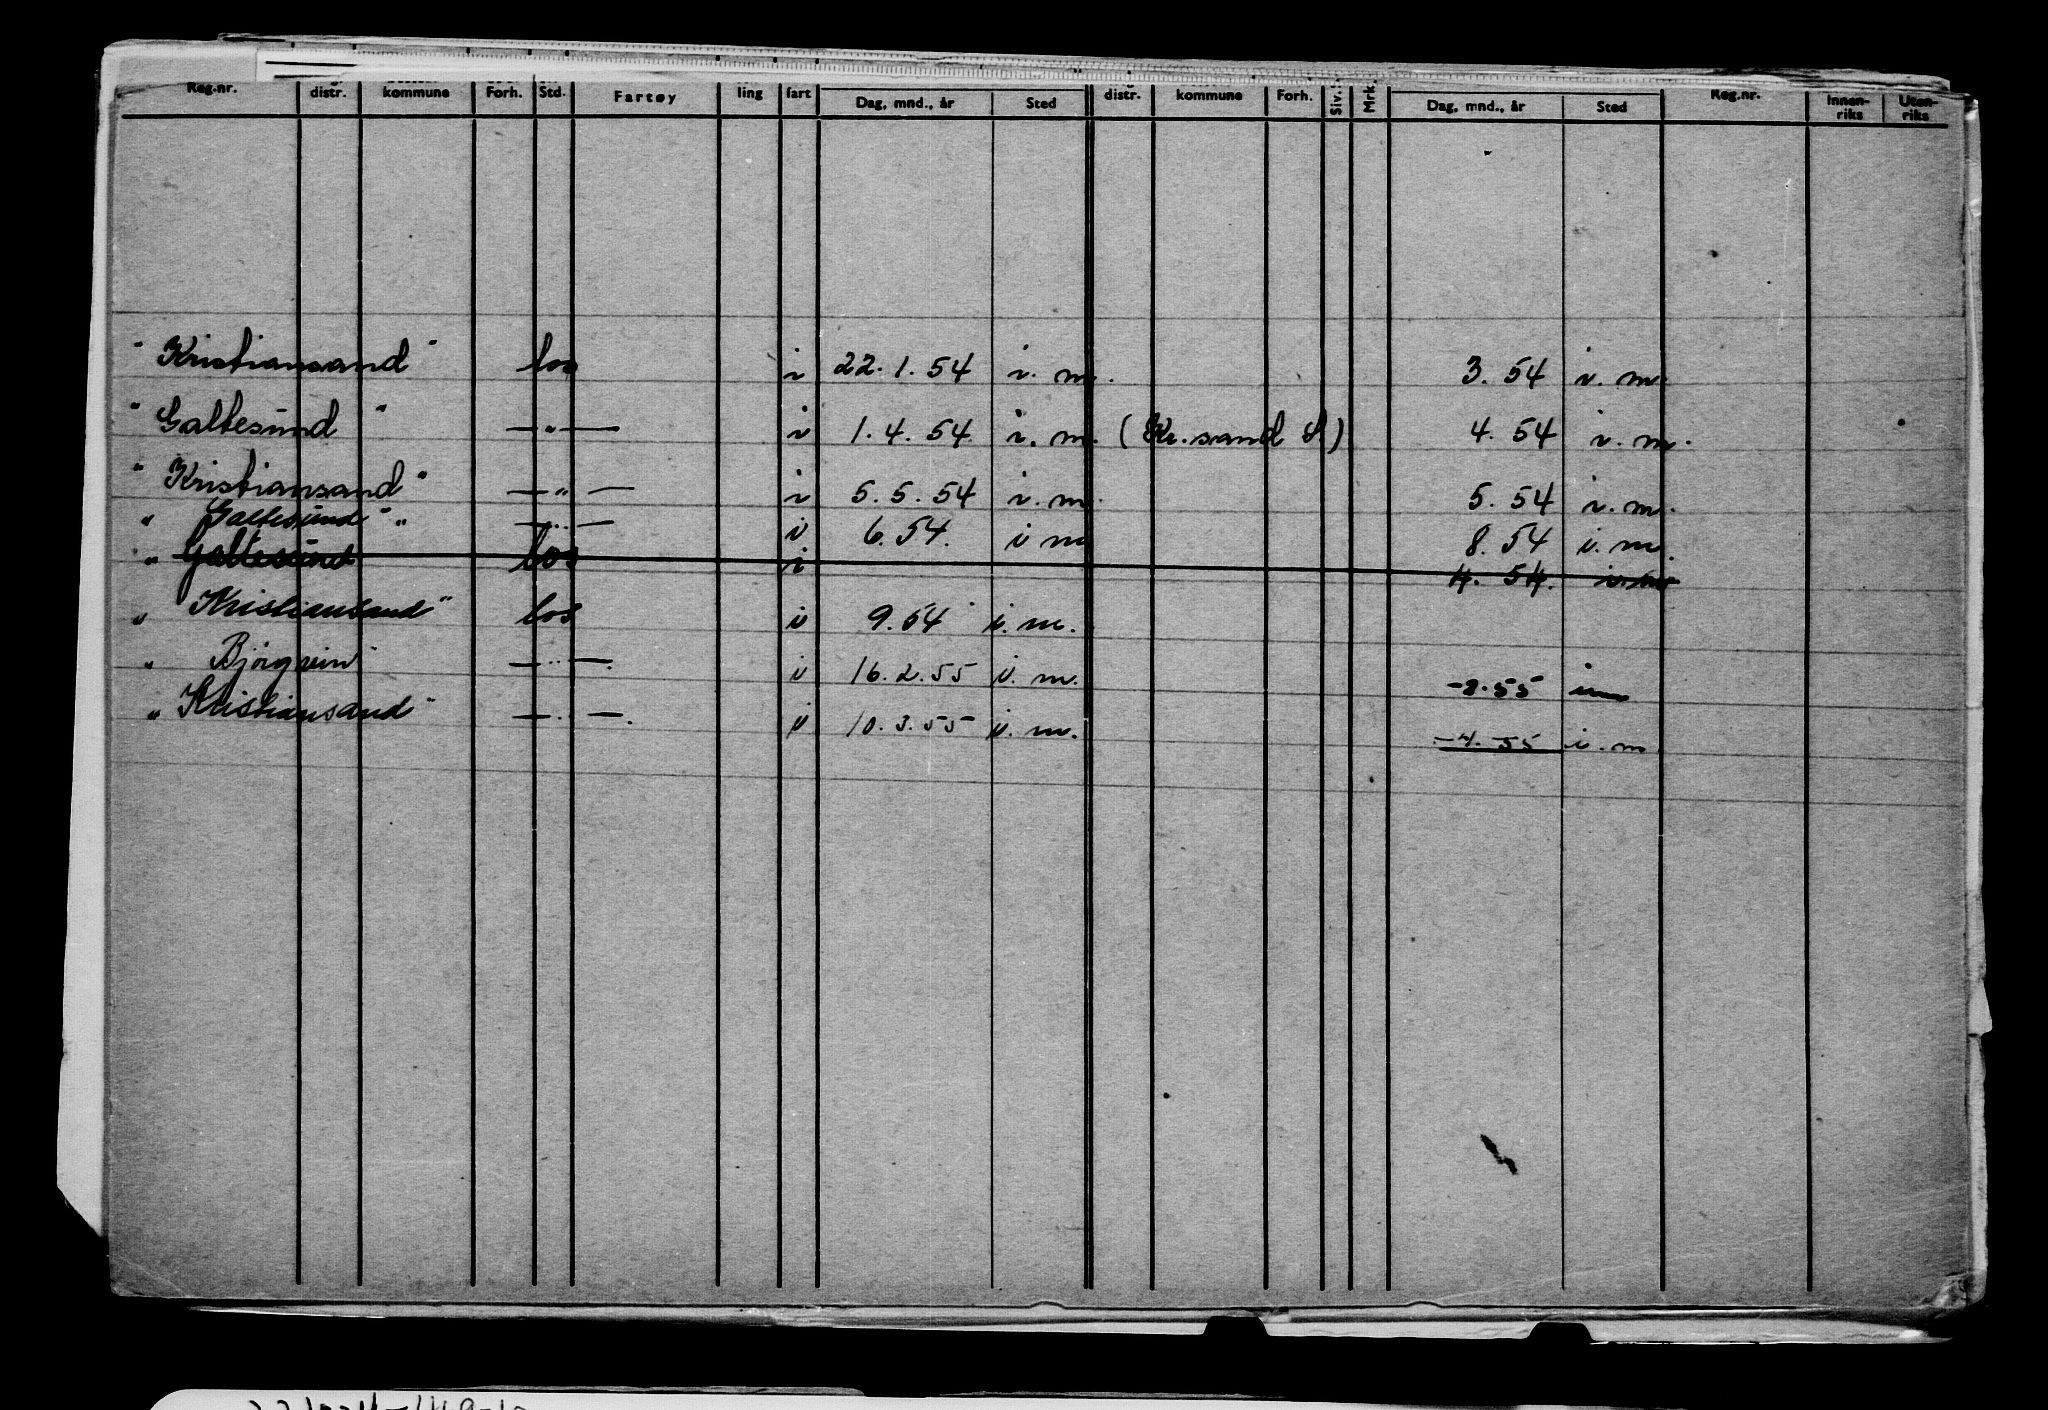 Reg.nr. distr. kommune Forh. Std. Fartøy ling fart Dag, mnd., år Sted distr. kommune Forh. Siv. Mrk. Dag, mnd., år Sted Reg.nr. Innen-riks Uten-riks
" Kristiansand " los i 22.1.54 i. m. 3. 54 i. m.
" Galtesund " — " — i 1. 4. 54 i. m. (Kr.sand S) 4. 54 i. m.
" Kristiansand " — " — i 5. 5. 54 i. m. 5. 54 i. m.
" Galtesund " " — " — i 6. 54. i m 8. 54 i. m.
" Galtesund los i 4. 54. i. m.
" Kristiansand " los i 9. 54 i. m.
" Bjørgvin " — " — i 16. 2. 55 i. m. 55 im
" Kristiansand " — " — i 10. 3. 55 i. m. -4. 55 i. m